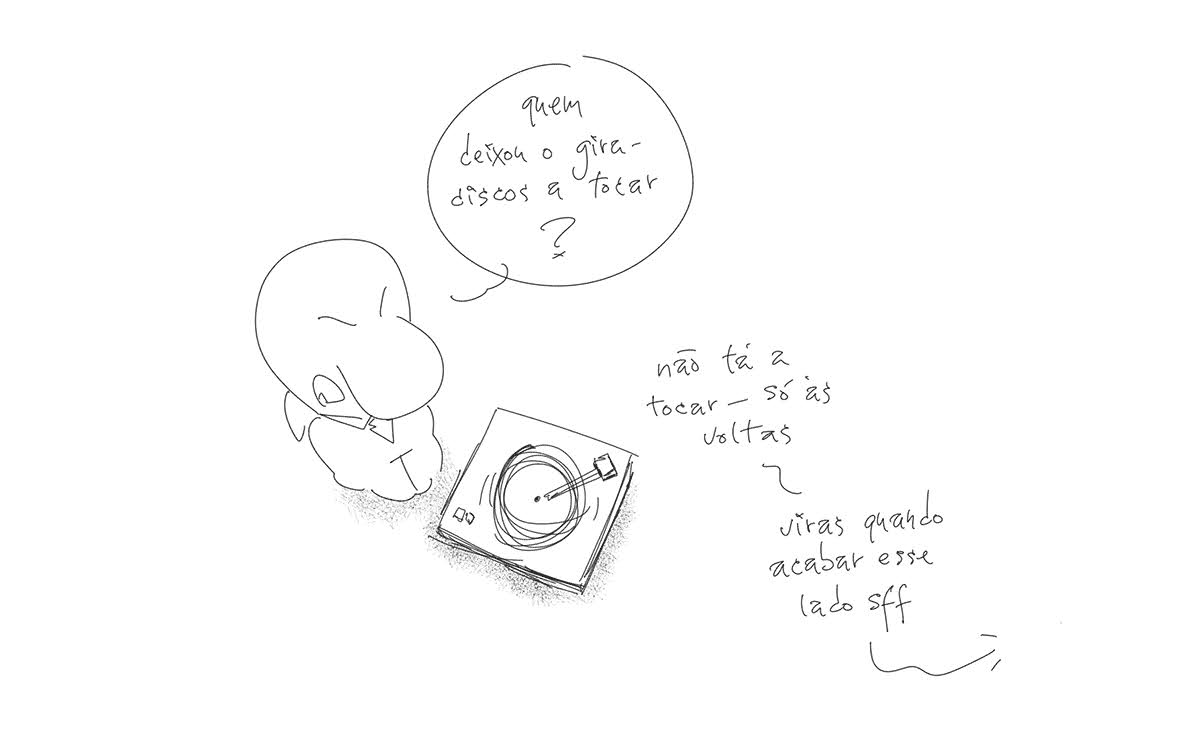 quem
deixou o gira-
discos a tocar
?
não tá a
tocar — só às
voltas
viras quando
acabar esse
lado sff